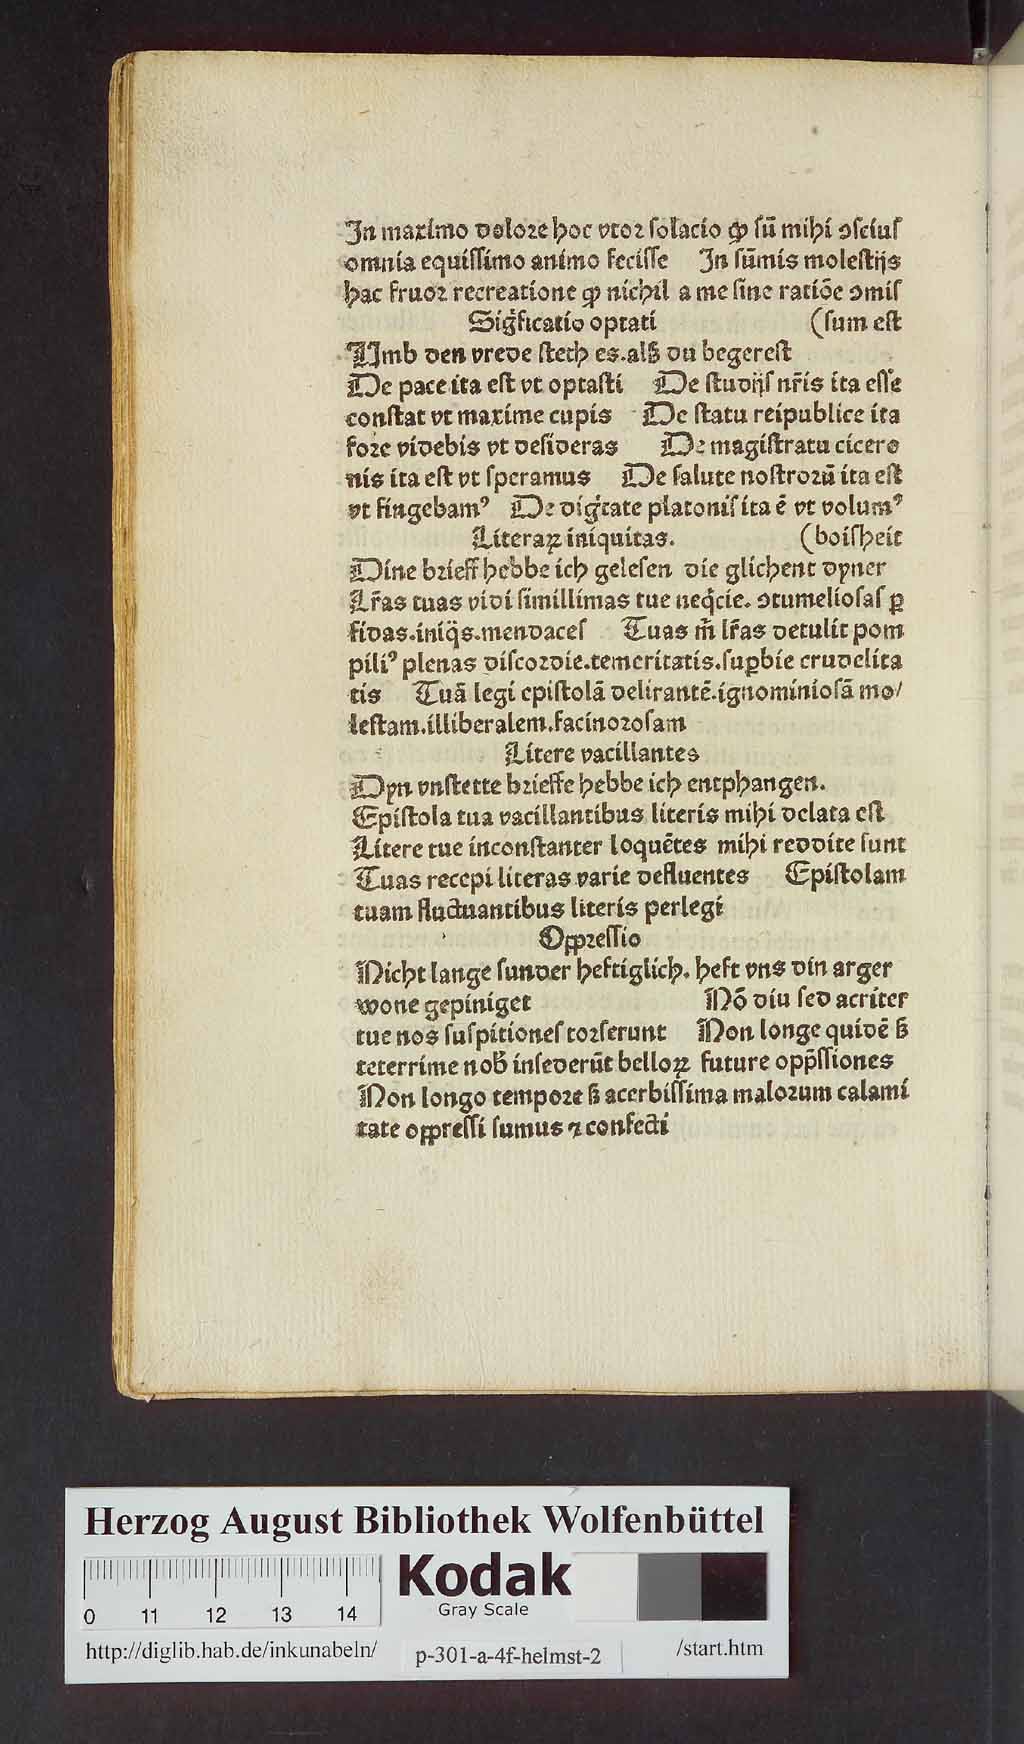 In maximo dolore hoc vtor solacio ꝙ sū mihi ↄscius
omnia equissimo animo fecisse In sūmis molestijs
hac fruor recreatione ꝙ nichil a me sine ratiōe ↄmis
Sigͥficatio optati (sum est
Umb den vrede steth es.alß du begerest
De pace ita est vt optasti De studijs nr̄is ita esse
constat vt maxime cupis De statu reipublice ita
fore videbis vt desideras De magistratu cicero
nis ita est vt speramus De salute nostrorū ita est
vt fingebamꝰ De digͥtate platonis ita ē vt volumꝰ
Literaꝝ iniquitas. (boisheit
Dine brieff hebbe ich gelesen die glichent dyner
Lr̄as tuas vidi simillimas tue neq̄cie. ↄtumeliosas ꝑ
fidas.iniq̄s.mendaces Tuas m̄ lr̄as detulit pom
piliꝰ plenas discordie.temeritatis.suꝑbie crudelita
tis Tuā legi epistolā delirantē.ignominiosā mo/
lestam.illiberalem.facinorosam
Litere vacillantes
Dyn vnstette brieffe hebbe ich entphangen.
Epistola tua vacillantibus literis mihi delata est
Litere tue inconstanter loquētes mihi reddite sunt
Tuas recepi literas varie defluentes Epistolam
tuam fluctuantibus literis perlegi
Oppressio
Nicht lange sunder heftiglich. heft vns din arger
wone gepiniget Nō diu sed acriter
tue nos suspitiones torserunt Non longe quidē ß
teterrime nob̄ insederūt belloꝝ future opp̄ssiones
Non longo tempore ß acerbissima malorum calami
tate oppressi sumus ⁊ confecti
Herzog August Bibliothek Wolfenbüttel
Kodak
Gray Scale
0 11 12 13 14
http://diglib.hab.de/inkunabeln/ p-301-a-4f-helmst-2 /start.htm